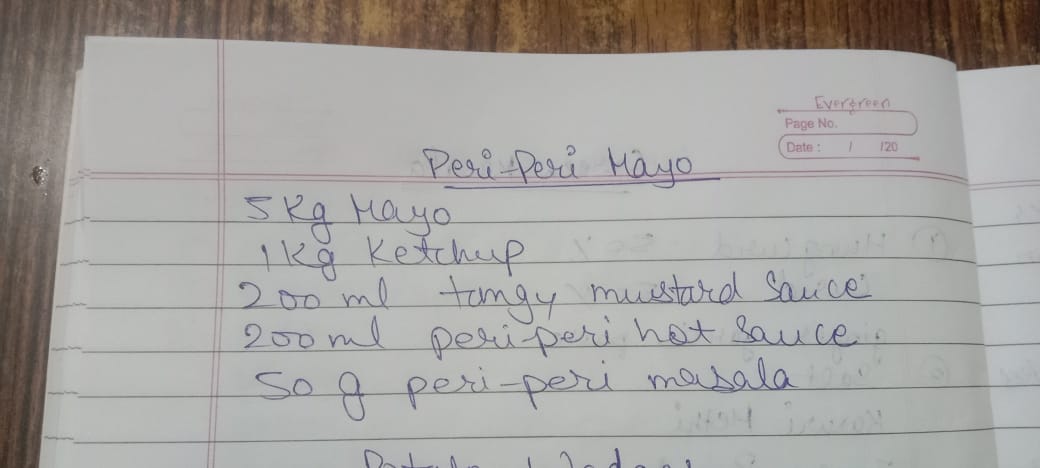 Evergreen
Page No.
Date : / /20
Peri-Peri Mayo
5 Kg Mayo
1 Kg Ketchup
200 ml tangy mustard Sauce
200 ml peri peri hot Sauce.
50 g peri-peri masala